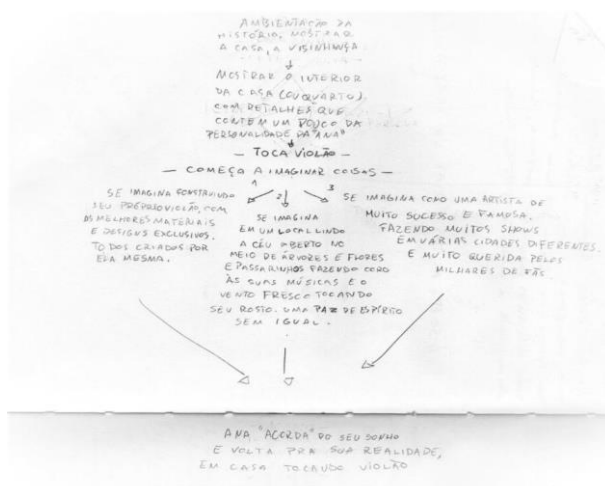 AMBIENTAÇÃO DA
HISTÓRIA, MOSTRAR
A CASA, A VISINHANÇA
MOSTRAR O INTERIOR
DA CASA (OU QUARTO).
COM DETALHES QUE
CONTÉM UM POUCO DA
PERSONALIDADE DA "ANA"
— TOCA VIOLÃO —
— COMEÇA A IMAGINAR COISAS —
1
SE IMAGINA CONSTRUINDO
SEU PRÓPRIO VIOLÃO, COM
OS MELHORES MATERIAIS
E DESIGNS EXCLUSIVOS.
TODOS CRIADOS POR
ELA MESMA.
2
SE IMAGINA
EM UM LOCAL LINDO
A CÉU ABERTO NO
MEIO DE ÁRVORES E FLORES
E PASSARINHOS FAZENDO CORO
ÀS SUAS MÚSICAS E O
VENTO FRESCO TOCANDO
SEU ROSTO. UMA PAZ DE ESPÍRITO
SEM IGUAL.
3
SE IMAGINA COMO UMA ARTISTA DE
MUITO SUCESSO E FAMOSA.
FAZENDO MUITOS SHOWS
EM VÁRIAS CIDADES DIFERENTES.
E MUITO QUERIDA PELOS
MILHARES DE FÃS.
ANA "ACORDA" DO SEU SONHO
E VOLTA PRA SUA REALIDADE,
EM CASA TOCANDO VIOLÃO